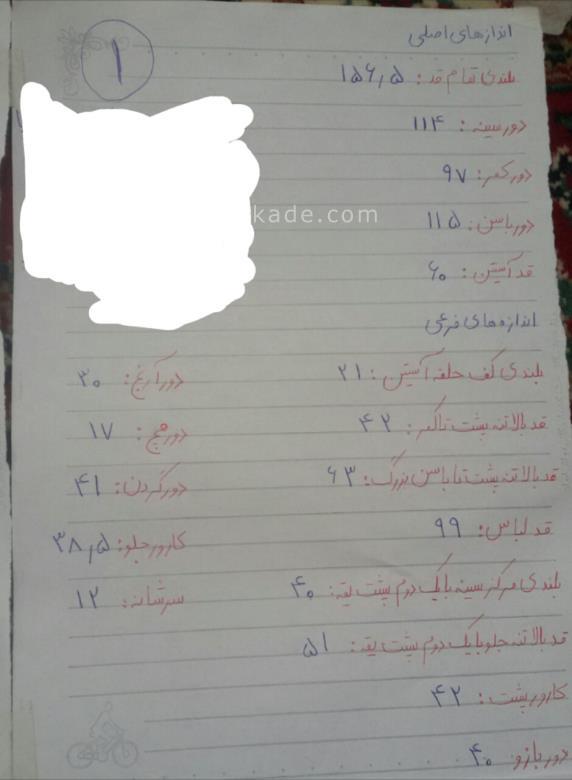 اندازهای اصلی
۱
بلندی تمام قد: ۱۵۶٫۵
دور سینه: ۱۱۴
دور کمر: ۹۷
kade.com
دور باسن: ۱۱۵
قد آستین: ۶۰
اندازه های فرعی
بلندی کف حلقه آستین: ۲۱ دور آرنج: ۳۰
قد بالا تنه پشت تا کمر: ۴۲ دور مچ: ۱۷
قد بالا تنه پشت تا باسن بزرگ: ۶۳ دور گردن: ۴۱
قد لباس: ۹۹ کارور جلو: ۳۸٫۵
بلندی مرکز سینه با یک دوم پشت یقه: ۴۰ سرشانه: ۱۲
قد بالا تنه جلو با یک دوم پشت یقه: ۵۱
کارور پشت: ۴۲
دور بازو ۴۰